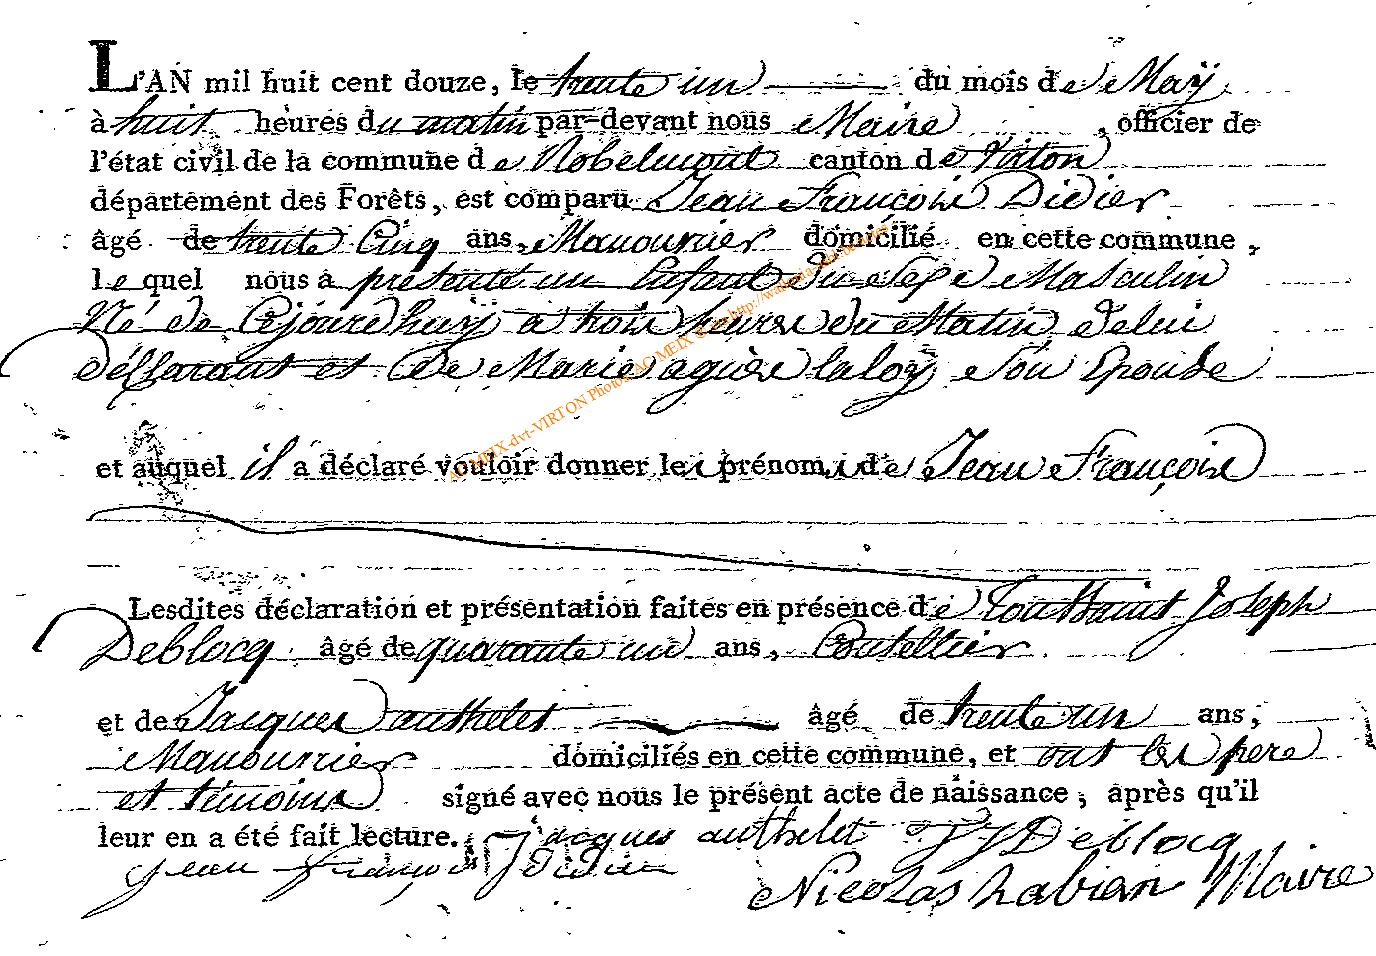 L'AN mil huit cent douze, le trente un du mois de May
à huit heures du matin par-devant nous Maire, officier de
l'état civil de la commune de Robelmont canton de Virton
département des Forêts, est comparu Jean François Didier
âgé de trente Cinq ans, Manouvrier domicilié en cette commune,
lequel nous a présenté un Enfant du Sexe Masculin
Né de Cejourdhuÿ a trois heures du Matin, de lui
déclarant et de Marie agnès laloÿ Son Epouse
et auquel il a déclaré vouloir donner les prénoms de Jean François
Lesdites déclaration et présentation faites en présence de Toussaint Joseph
Deblocq âgé de quarante un ans,
et de Jacques authelet âgé de trente un ans,
Manouvrier domiciliés en cette commune, et ont les pere
et temoins signé avec nous le présent acte de naissance, après qu'il
leur en a été fait lecture. jacques authelet TJ Deblocq
jean françois Didier
Nicolas habran Maire
AC MEIX-dvt-VIRTON Photos AC MEIX